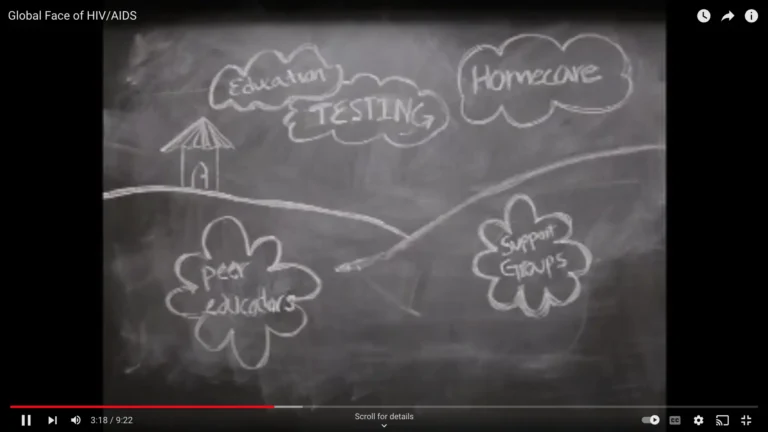 Global Face of HIV/AIDS
Education
TESTING
Homecare
peer
educators
Support
Groups
3:18 / 9:22
Scroll for details
CC